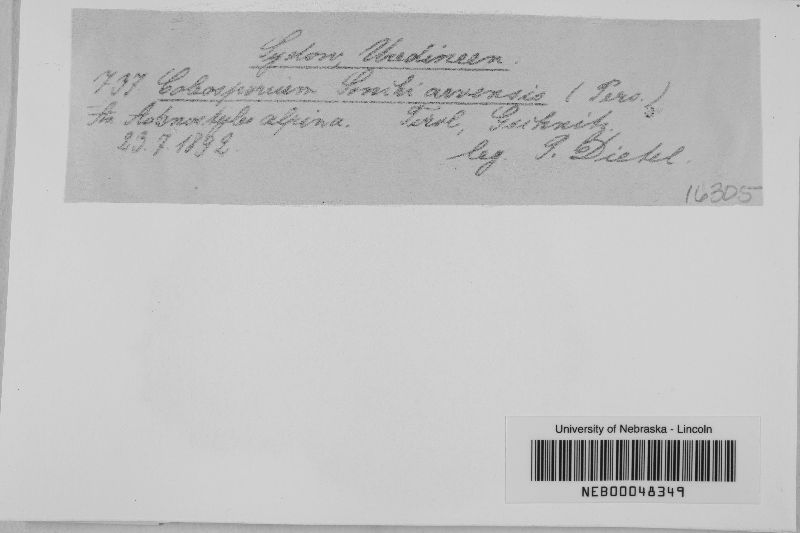 Sydow, Uredineen.
737 Coleosporium Sonchi arvensis (Pers.)
An Adenostyles alpina. Tirol, Gschnitz.
23.7.1892. leg P. Dietel.
16305
University of Nebraska - Lincoln
NEB00048349